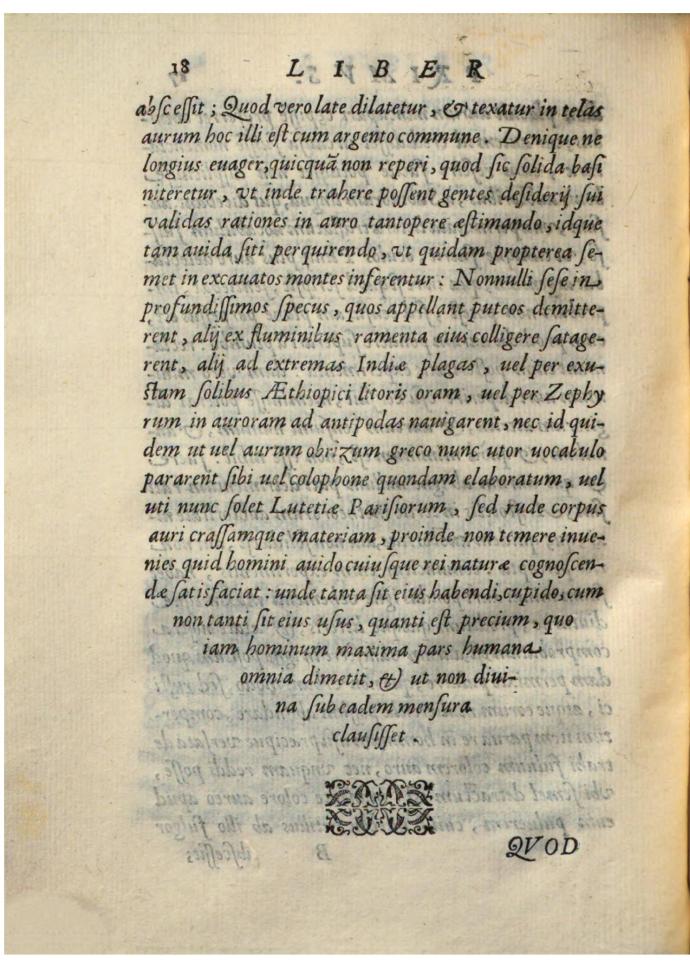 18 LIBER
abscessit ; Quod vero late dilatetur , & texatur in telas
aurum hoc illi est cum argento commune . Denique ne
longius euager, quicquā non reperi, quod sic solida basi
niteretur , vt inde trahere possent gentes desiderij sui
validas rationes in auro tantopere æstimando , idque
tam auida siti perquirendo , vt quidam propterea se-
met in excauatos montes inferentur : Nonnulli sese in
profundissimos specus , quos appellant puteos demitte-
rent , alij ex fluminibus ramenta eius colligere satage-
rent, alij ad extremas Indiæ plagas , uel per exu-
stam solibus Æthiopici litoris oram , uel per Zephy
rum in auroram ad antipodas nauigarent , nec id qui-
dem ut uel aurum obrizum greco nunc utor uocabulo
pararent sibi uel colophone quondam elaboratum , uel
uti nunc solet Lutetiæ Parisiorum , sed rude corpus
auri crassamque materiam , proinde non temere inue-
nies quid homini auido cuiusque rei naturæ cognoscen-
dæ satisfaciat : unde tanta sit eius habendi, cupido, cum
non tanti sit eius usus , quanti est precium , quo
iam hominum maxima pars humana
omnia dimetit, & ut non diui-
na sub eadem mensura
clausisset .
QVOD